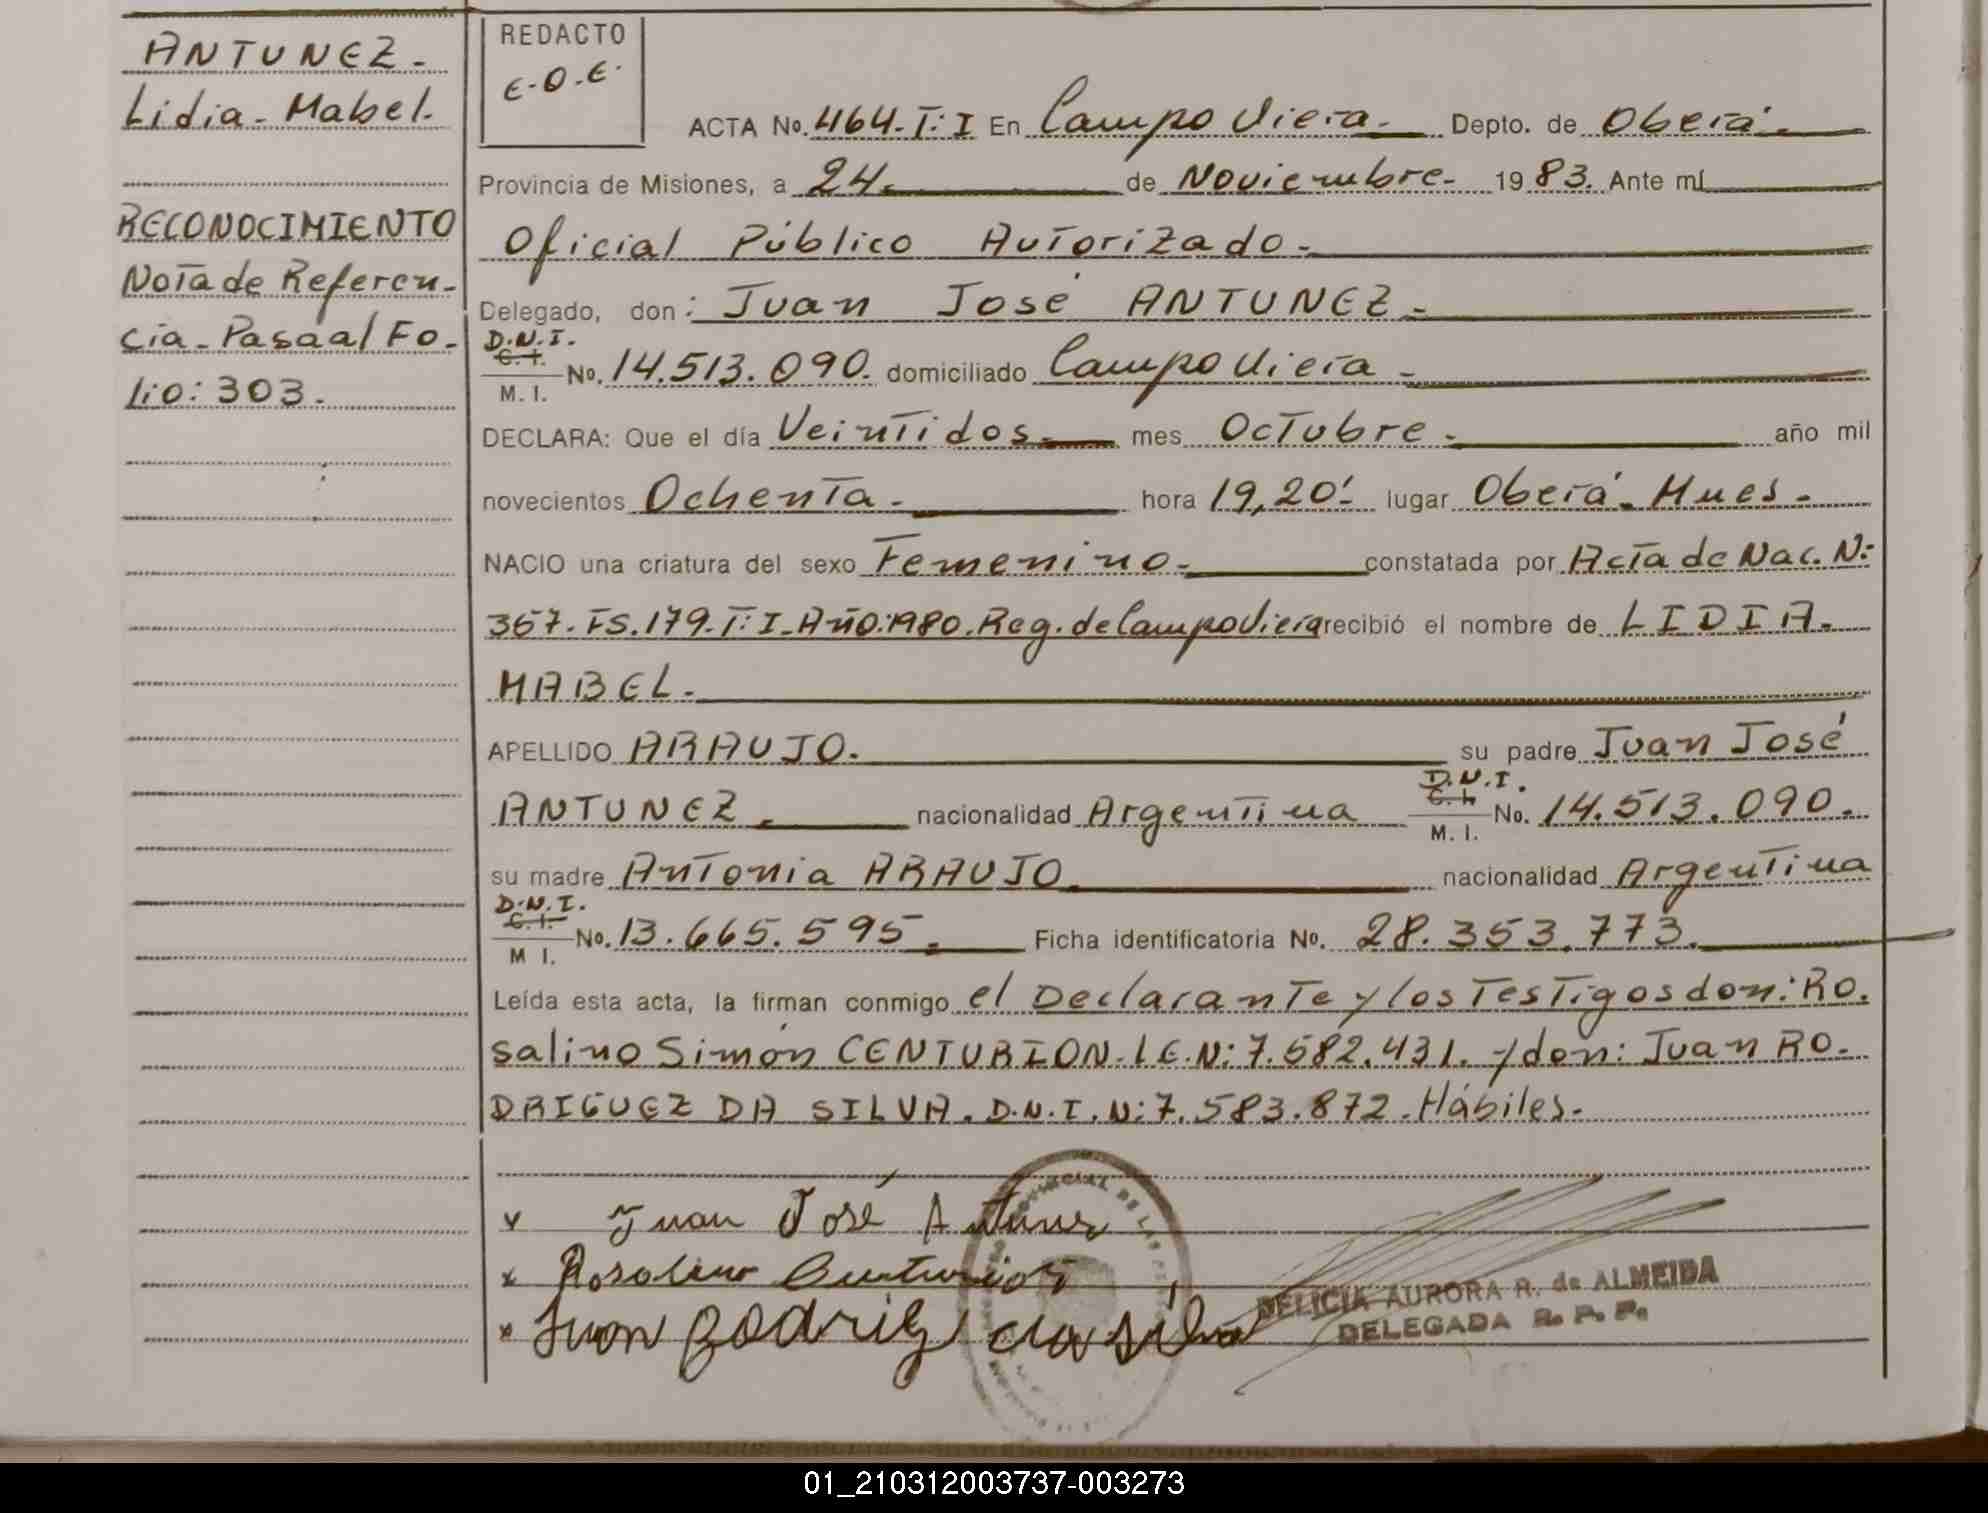 ANTUNEZ.-
Lidia-Mabel.
RECONOCIMIENTO
Nota de Referen-
cia-Pasa al Fo-
lio: 303.
REDACTO
E.O.E.
ACTA No. 464-T:I En Campo Viera.- Depto. de Oberá.-
Provincia de Misiones, a 24.- de Noviembre.- 1983. Ante mí
Oficial Público Autorizado.-
Delegado, don: Juan José ANTUNEZ.-
D.N.I.
C. I.
M. I.
No. 14.513.090. domiciliado Campo Viera.-
DECLARA: Que el día Veintidos.- mes Octubre.- año mil
novecientos Ochenta.- hora 19,20' lugar Oberá-Mnes.-
NACIO una criatura del sexo Femenino.- constatada por Acta de Nac. N:
367-FS.179-T:I-Año:1980.Reg.de Campo Viera recibió el nombre de LIDIA.-
MABEL.-
APELLIDO ARAUJO. su padre Juan José
ANTUNEZ.- nacionalidad Argentina D.N.I. C. I. M. I. No. 14.513.090.
su madre Antonia ARAUJO nacionalidad Argentina
D.N.I.
C. I.
M I.
No. 13.665.595.- Ficha identificatoria No. 28.353.773.
Leída esta acta, la firman conmigo el Declarante y los Testigos don: RO.
salino Simón CENTURION-L.E.N:7.582.431. y don: Juan RO-
DRIGUEZ DA SILVA. D.N.I.N:7.583.872.Hábiles.-
Juan José Antunez
Rosalino Centurion
Juan Rodrig da silva
DELICIA AURORA R. de ALMEIDA
DELEGADA R. P. P.
01_210312003737-003273